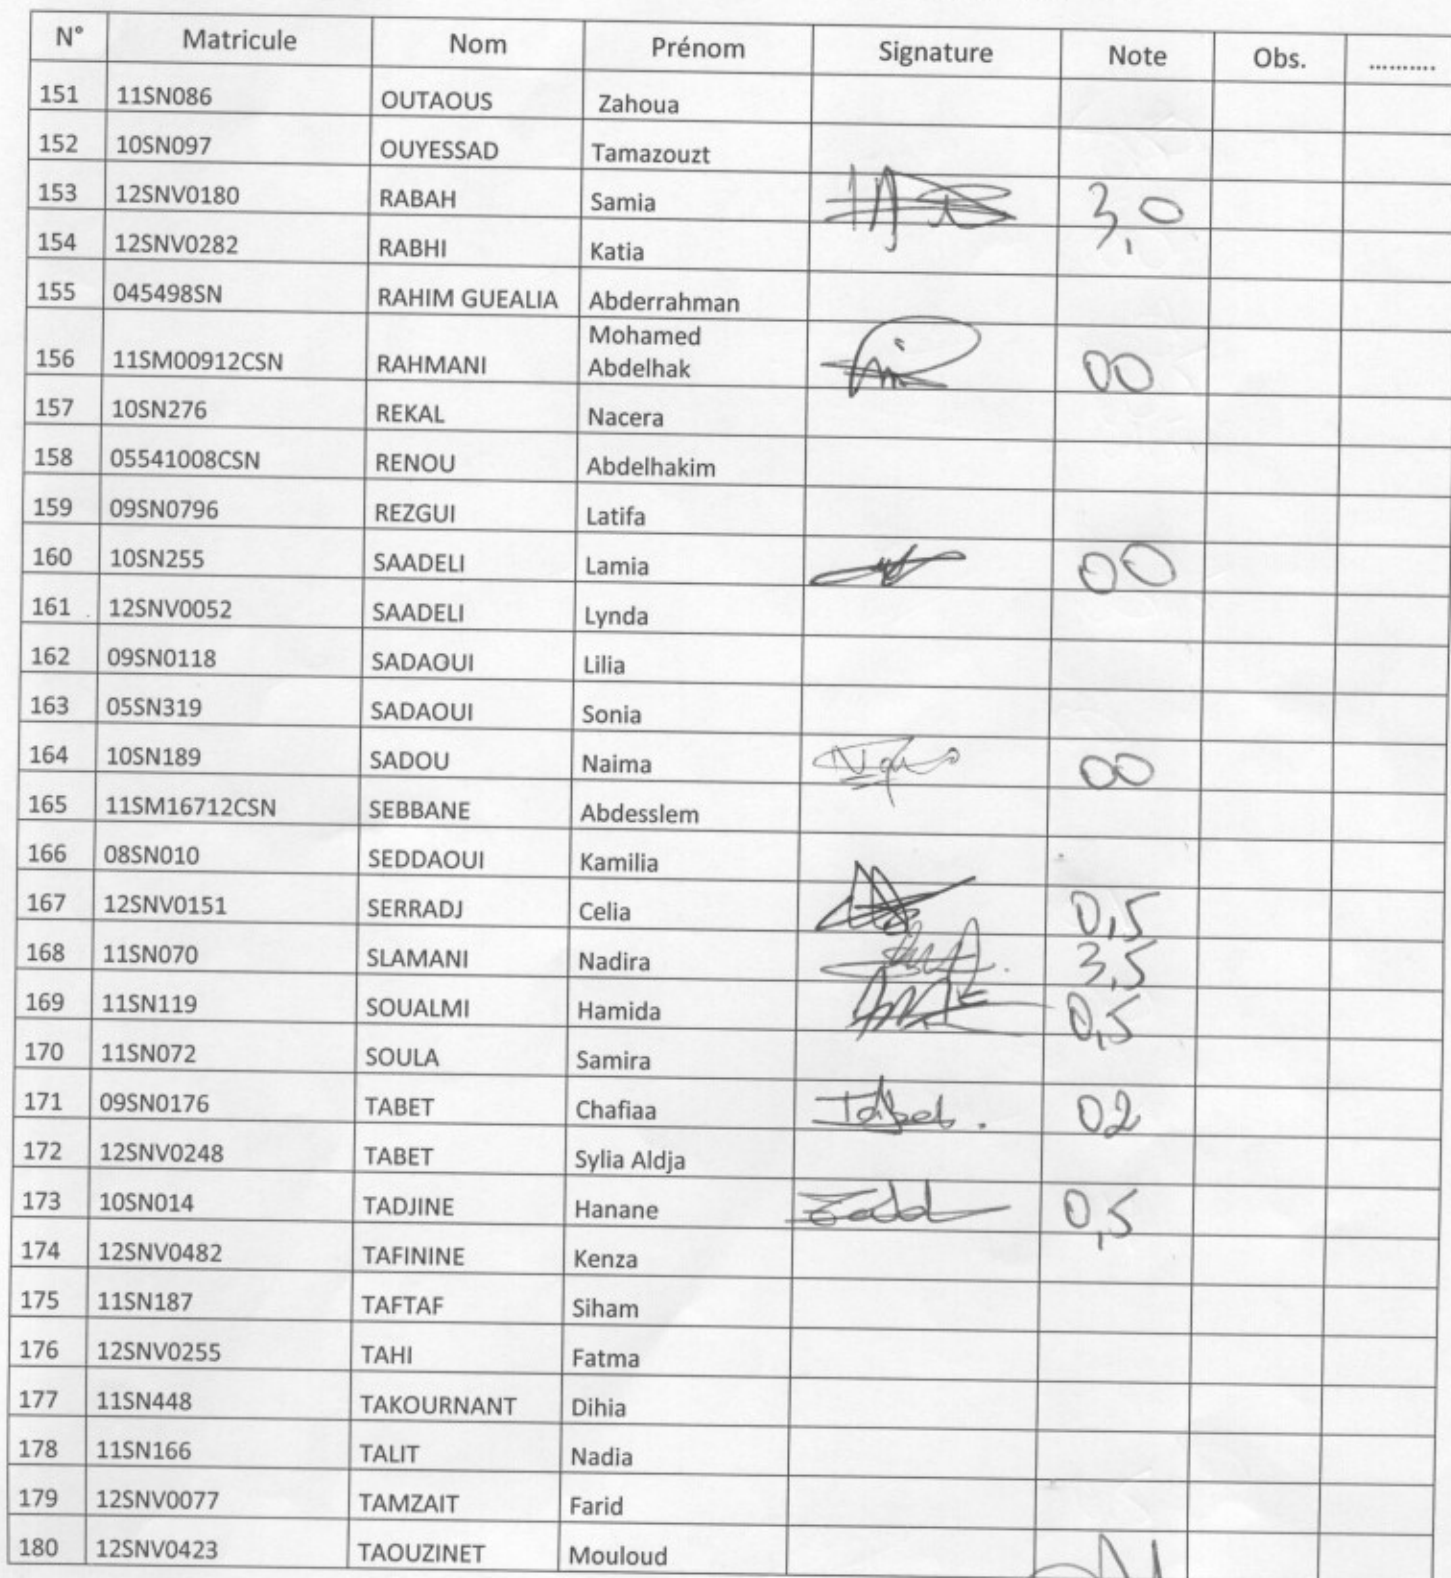 N° Matricule Nom Prénom Signature Note Obs. ..........
151 11SN086 OUTAOUS Zahoua
152 10SN097 OUYESSAD Tamazouzt
153 12SNV0180 RABAH Samia 3,0
154 12SNV0282 RABHI Katia
155 045498SN RAHIM GUEALIA Abderrahman
Mohamed
156 11SM00912CSN RAHMANI Abdelhak 00
157 10SN276 REKAL Nacera
158 05541008CSN RENOU Abdelhakim
159 09SN0796 REZGUI Latifa
160 10SN255 SAADELI Lamia 00
161 12SNV0052 SAADELI Lynda
162 09SN0118 SADAOUI Lilia
163 05SN319 SADAOUI Sonia
164 10SN189 SADOU Naima 00
165 11SM16712CSN SEBBANE Abdesslem
166 08SN010 SEDDAOUI Kamilia
167 12SNV0151 SERRADJ Celia 0,5
168 11SN070 SLAMANI Nadira 3,5
169 11SN119 SOUALMI Hamida 0,5
170 11SN072 SOULA Samira
171 09SN0176 TABET Chafiaa Tabet. 02
172 12SNV0248 TABET Sylia Aldja
173 10SN014 TADJINE Hanane 0,5
174 12SNV0482 TAFININE Kenza
175 11SN187 TAFTAF Siham
176 12SNV0255 TAHI Fatma
177 11SN448 TAKOURNANT Dihia
178 11SN166 TALIT Nadia
179 12SNV0077 TAMZAIT Farid
180 12SNV0423 TAOUZINET Mouloud